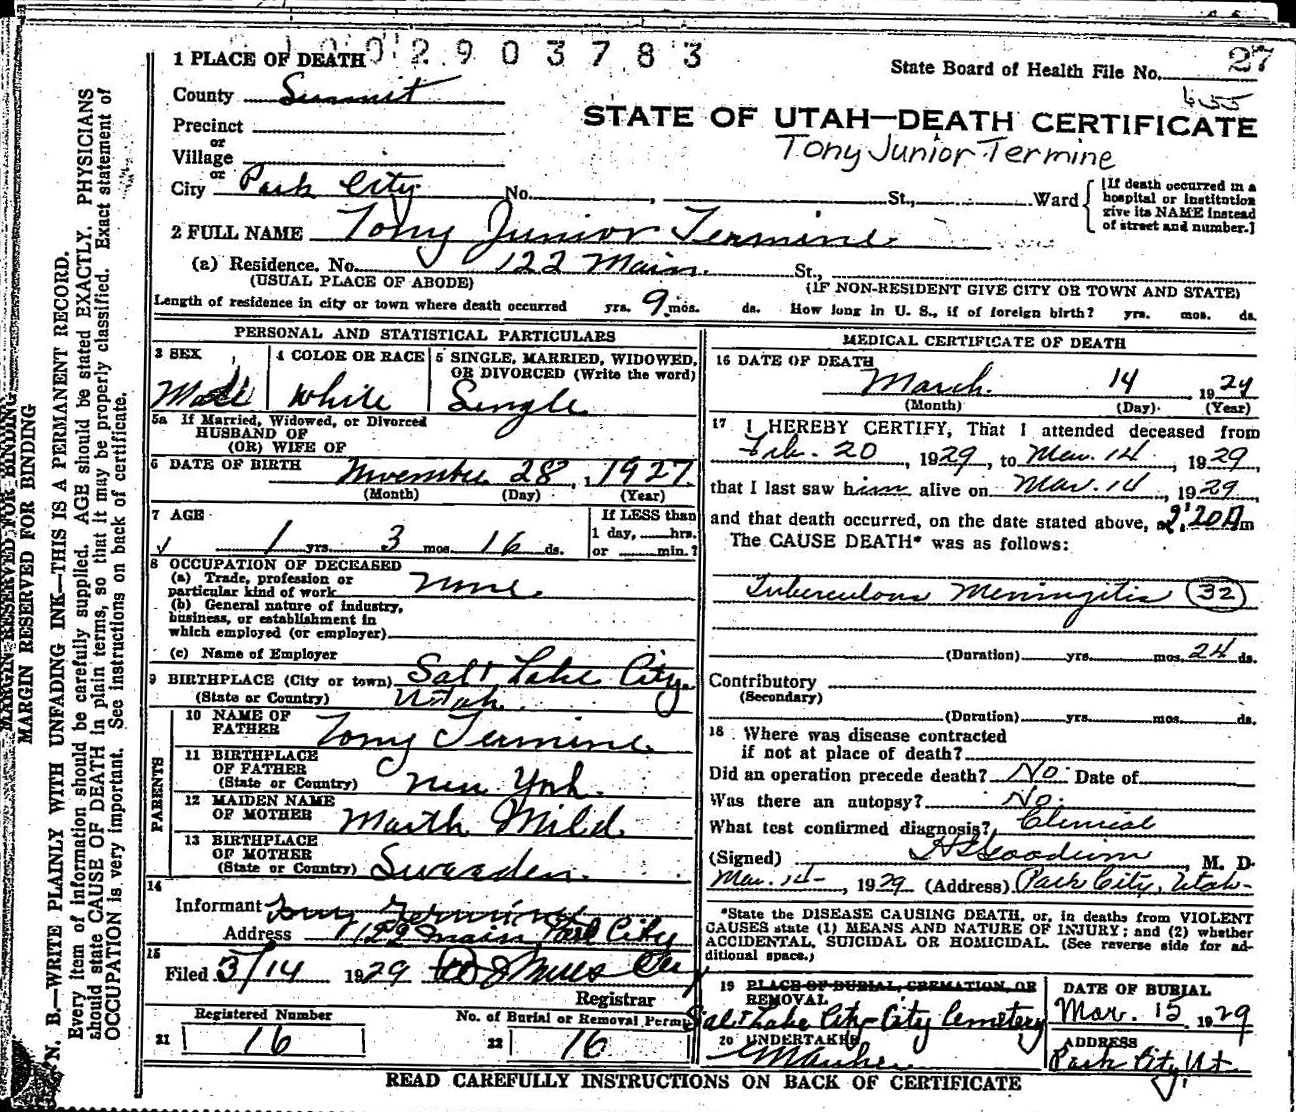 1 0 0 2 9 0 3 7 8 3
27
1 PLACE OF DEATH
State Board of Health File No.
655
County Summit
STATE OF UTAH—DEATH CERTIFICATE
Precinct
or
Tony Junior Termine
Village
or
City Park City No. , St., Ward
[If death occurred in a
hospital or institution
give its NAME instead
of street and number.]
2 FULL NAME Tony Junior Termine
(a) Residence. No. 122 Main. St.,
(USUAL PLACE OF ABODE) (IF NON-RESIDENT GIVE CITY OR TOWN AND STATE)
Length of residence in city or town where death occurred yrs. 9 mos. ds. How long in U. S., if of foreign birth? yrs. mos. ds.
PERSONAL AND STATISTICAL PARTICULARS
3 SEX 4 COLOR OR RACE 5 SINGLE, MARRIED, WIDOWED,
OR DIVORCED (Write the word)
Male White Single
5a If Married, Widowed, or Divorced
HUSBAND OF
(OR) WIFE OF
6 DATE OF BIRTH November 28, 1927
(Month) (Day) (Year)
7 AGE If LESS than
1 day, hrs.
1 yrs. 3 mos. 16 ds. or min.?
8 OCCUPATION OF DECEASED
(a) Trade, profession or
particular kind of work None
(b) General nature of industry,
business, or establishment in
which employed (or employer)
(c) Name of Employer
9 BIRTHPLACE (City or town) Salt Lake City
(State or Country) Utah
PARENTS
10 NAME OF
FATHER Tony Termine
11 BIRTHPLACE
OF FATHER
(State or Country) New York.
12 MAIDEN NAME
OF MOTHER Marth Mild
13 BIRTHPLACE
OF MOTHER
(State or Country) Swaeden.
14
Informant Tony Termine
Address 122 Main Park City
15
Filed 3/14 1929
Registrar
Registered Number No. of Burial or Removal Permit
21 16 22 16
MEDICAL CERTIFICATE OF DEATH
16 DATE OF DEATH
March 14 1929
(Month) (Day) (Year)
17 I HEREBY CERTIFY, That I attended deceased from
Feb. 20, 1929, to Mar. 14, 1929,
that I last saw him alive on Mar. 14, 1929,
and that death occurred, on the date stated above, at 2:20 A m
The CAUSE DEATH* was as follows:
Tuberculous Meningitis 32
(Duration) yrs. mos. 24 ds.
Contributory
(Secondary)
(Duration) yrs. mos. ds.
18 Where was disease contracted
if not at place of death?
Did an operation precede death? No Date of
Was there an autopsy? No.
What test confirmed diagnosis? Clinical
(Signed) , M. D.
Mar. 14, 1929 (Address) Park City, Utah
*State the DISEASE CAUSING DEATH, or, in deaths from VIOLENT
CAUSES state (1) MEANS AND NATURE OF INJURY; and (2) whether
ACCIDENTAL, SUICIDAL OR HOMICIDAL. (See reverse side for ad-
ditional space.)
19 PLACE OF BURIAL, CREMATION, OR
REMOVAL
Salt Lake City City Cemetery
DATE OF BURIAL
Mar. 15 1929
20 UNDERTAKER
ADDRESS
Park City Ut.
READ CAREFULLY INSTRUCTIONS ON BACK OF CERTIFICATE
MARGIN RESERVED FOR BINDING
MARGIN RESERVED FOR BINDING
N. B.—WRITE PLAINLY WITH UNFADING INK—THIS IS A PERMANENT RECORD.
Every item of information should be carefully supplied. AGE should be stated EXACTLY. PHYSICIANS
should state CAUSE OF DEATH in plain terms, so that it may be properly classified. Exact statement of
OCCUPATION is very important. See instructions on back of certificate.